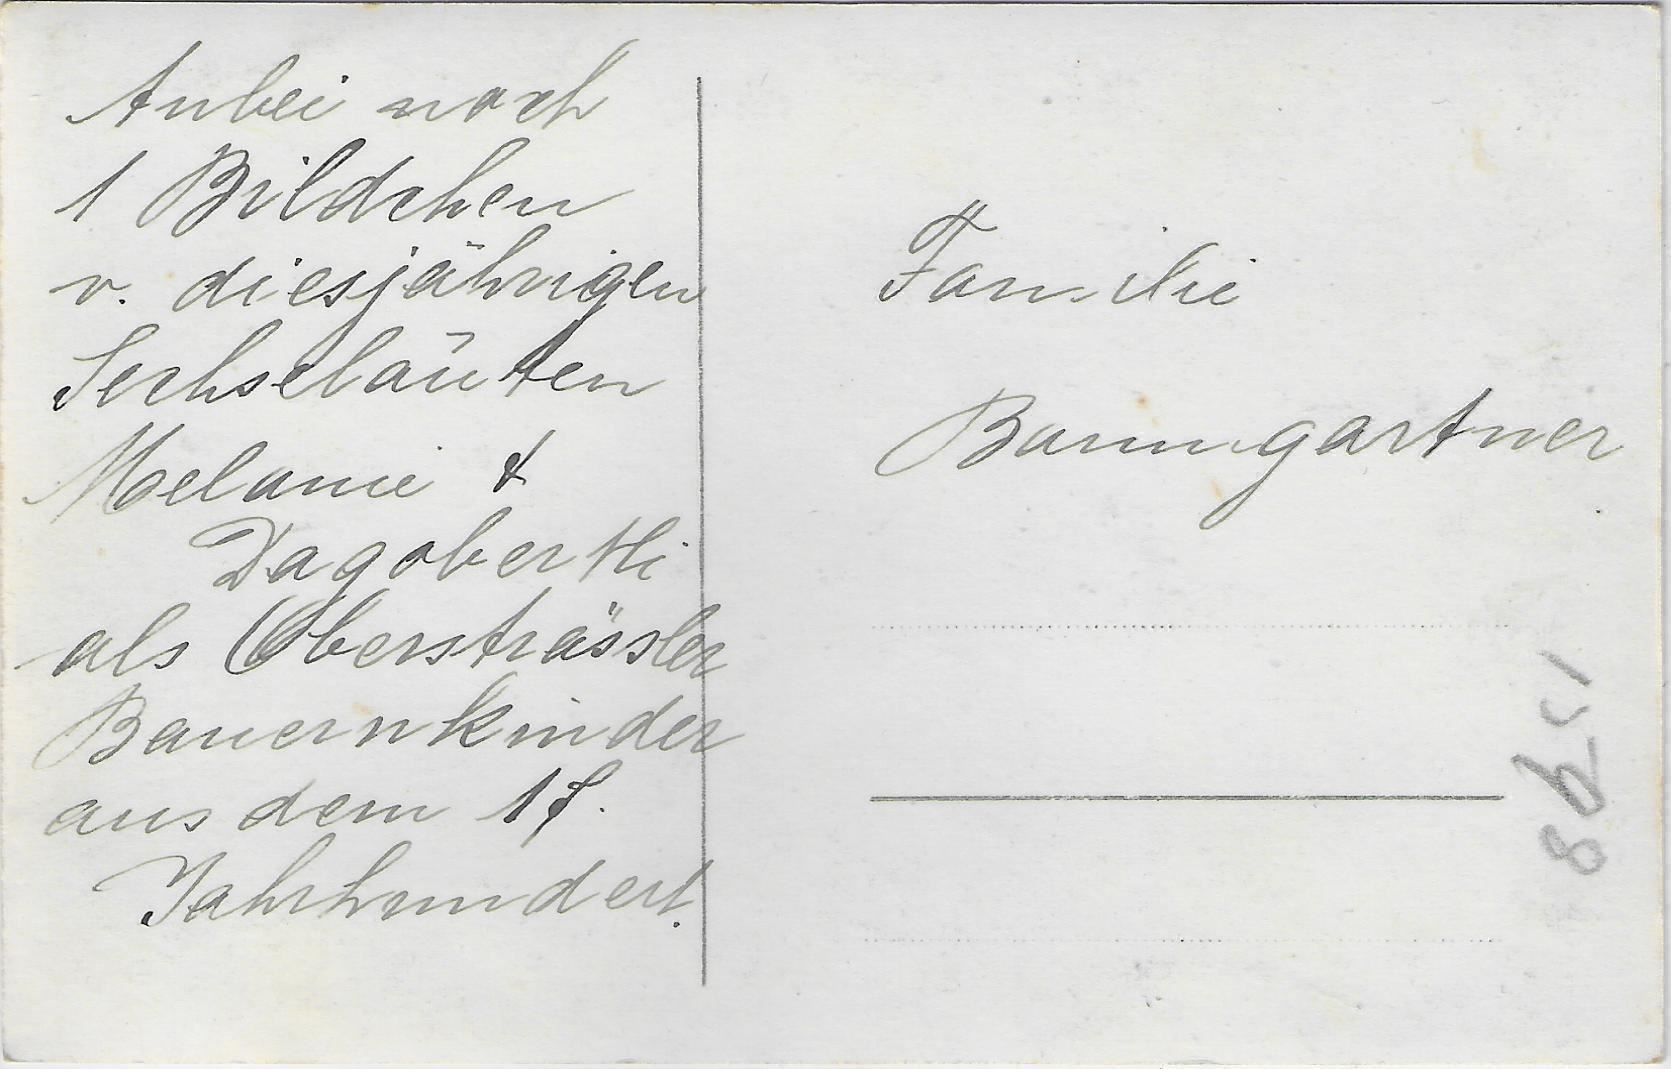 Anbei noch
1 Bildchen
v. diesjährigen
Sechseläuten
Melanie &
Dagobertli
als Obersträssler
Bauernkinder
aus dem 17.
Jahrhundert.
Familie
Baumgartner